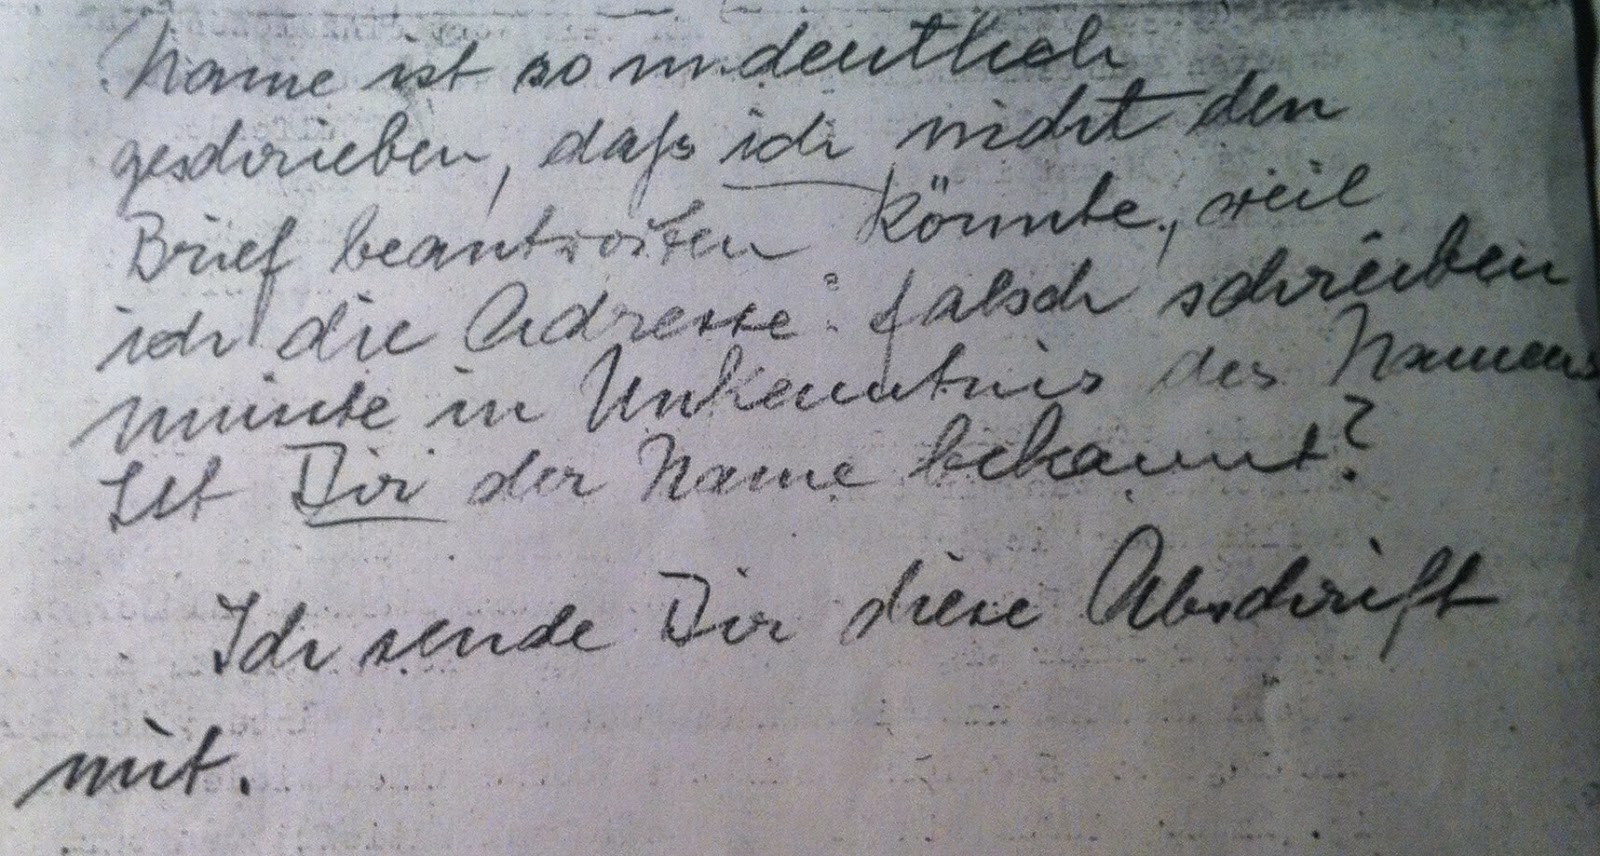 Name ist so undeutlich
geschrieben, daß ich nicht den
Brief beantworten könnte, weil
ich die Adresse falsch schreiben
müsste in Unkenntnis des Namens
Ist Dir der Name bekannt?
Ich sende Dir diese Abschrift
mit.